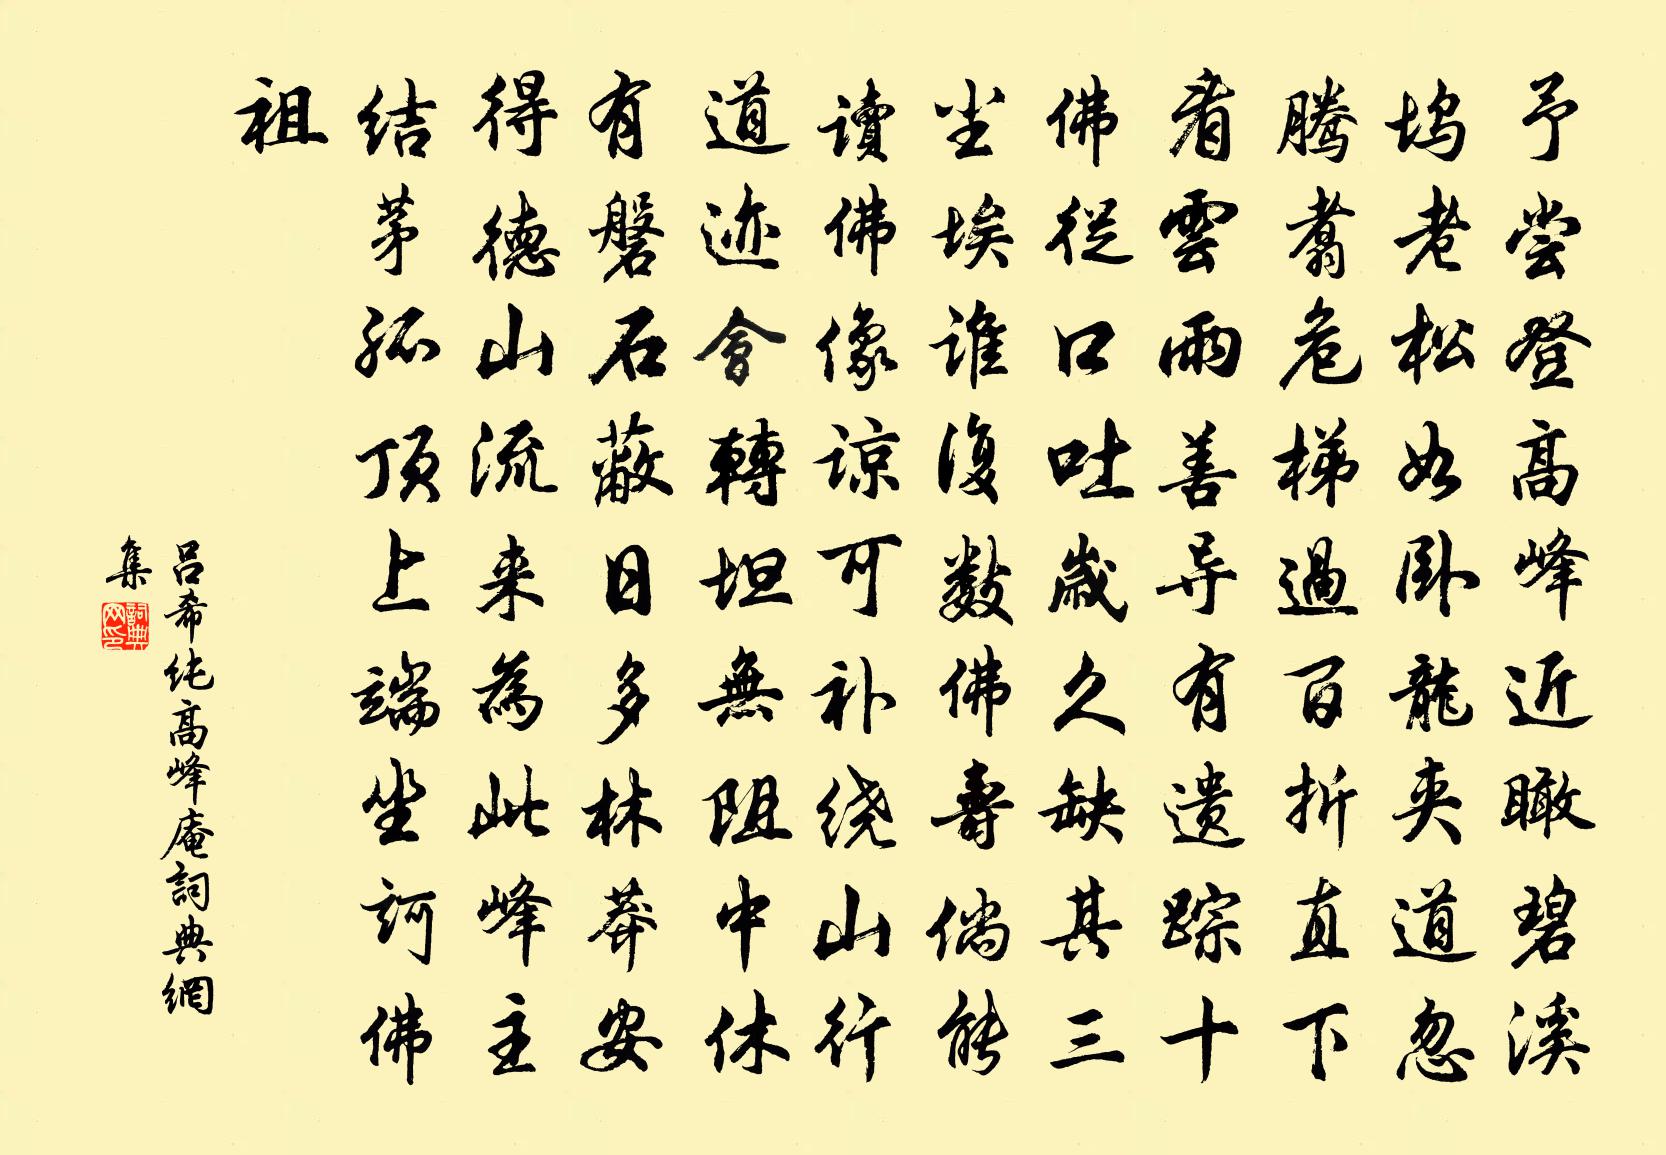 予尝登高峰近瞰碧溪
坞老松如卧龍夹道忽
腾翥危梯過百折直下
看雲雨善导有遗踪十
佛從口吐歲久缺其三
坐埃谁復数佛壽倘能
读佛像谅可补绕山行
道迹會轉坦無阻中休
有磐石蔽日多林莽安
得德山流来為此峰主
结茅孤顶上端坐訶佛
祖
吕希纯高峰庵詞典網
集
詞典
网印